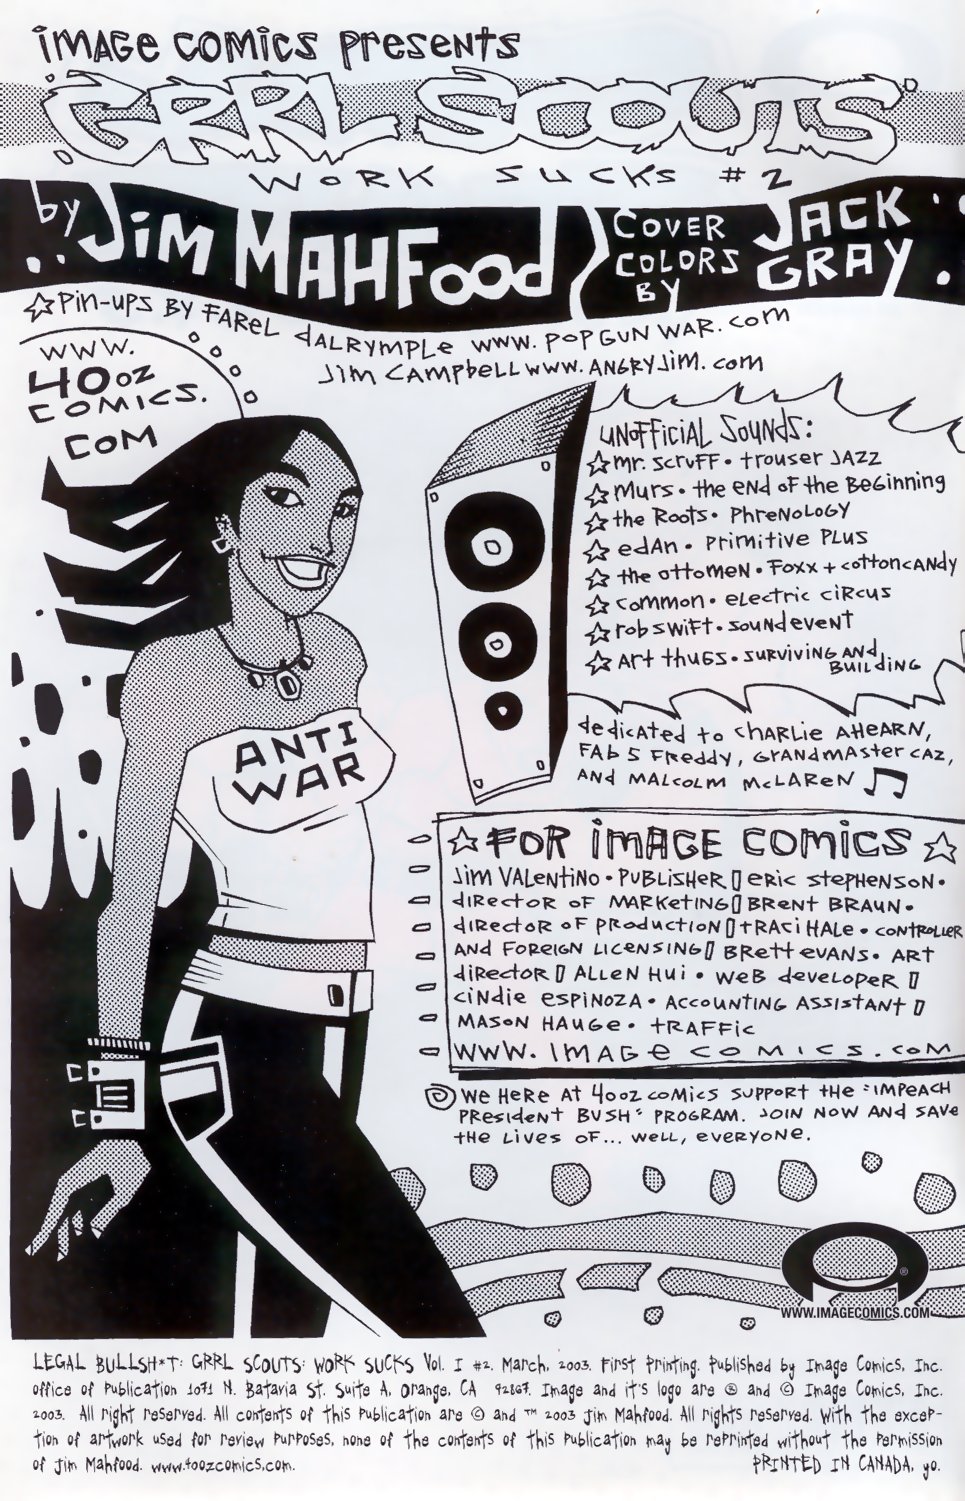 IMAGE COMICS PRESENTS
GRRL SCOUTS
WORK SUCKS #2
by Jim MAHFood
COVER COLORS BY JACK GRAY
☆ Pin-ups BY FAREL DALRYMPLE www.POPGUNWAR.com
Jim CAMPbELL www.ANGRYJim.com
WWW.
40oz
COMICS.
COM
UNOFFICIAL SOUNDS:
☆ mr. scruff • trouser JAZZ
☆ Murs • the eNd of the BeGinning
☆ the Roots • PhreNoloGY
☆ edAn • Primitive PLUS
☆ the ottomeN • Foxx + cottoncANdy
☆ common • eLectric ciRcus
☆ rob swift • soUNd eveNt
☆ Art thuGs • SURVIVING ANd
BUILdING
dedicated to CHARLie AHEARN,
FAb 5 FReddy, GrANdmASter CAZ,
ANd MALCOLM McLAReN
ANTI
WAR
☆ FOR IMAGE COMICS ☆
Jim VALENtiNO • PUBLISHER ▯ eric StePHENSON •
diRector OF MARKetiNG ▯ BReNt BRAUN •
diRector OF PRoductioN ▯ tRACi HALe • CONtRolleR
ANd FOREIGN LICeNSiNG ▯ BRett evANS • ARt
diRectoR ▯ ALLEN Hui • WeB deveLoPeR ▯
CiNdie esPiNoZA • ACCOUNtiNG ASSistANt ▯
MASON HAUGe • tRAFFic
WWW.IMAGeCOMICS.COM
We HeRe At 40oz COMICS SUPPORT tHe "IMPEACH
PResideNt BUSH" PROGRAM. JOIN NOW ANd SAVe
tHe LiVes OF... WeLL, eVeRYoNe.
WWW.IMAGECOMICS.COM
®
LEGAL BULLSH*T: GRRL SCOUTS: WORK SUCKS Vol. I #2. March, 2003. First Printing. Published by Image Comics, Inc.
Office of Publication 1071 N. Batavia St. Suite A, Orange, CA 92867. Image and it's logo are ® and © Image Comics, Inc.
2003. All right reserved. All contents of this Publication are © and ™ 2003 Jim Mahfood. All rights reserved. With the excep-
tion of artwork used for review purposes, none of the contents of this Publication may be reprinted without the Permission
of Jim Mahfood. www.40ozcomics.com. PRINTED IN CANADA, yo.